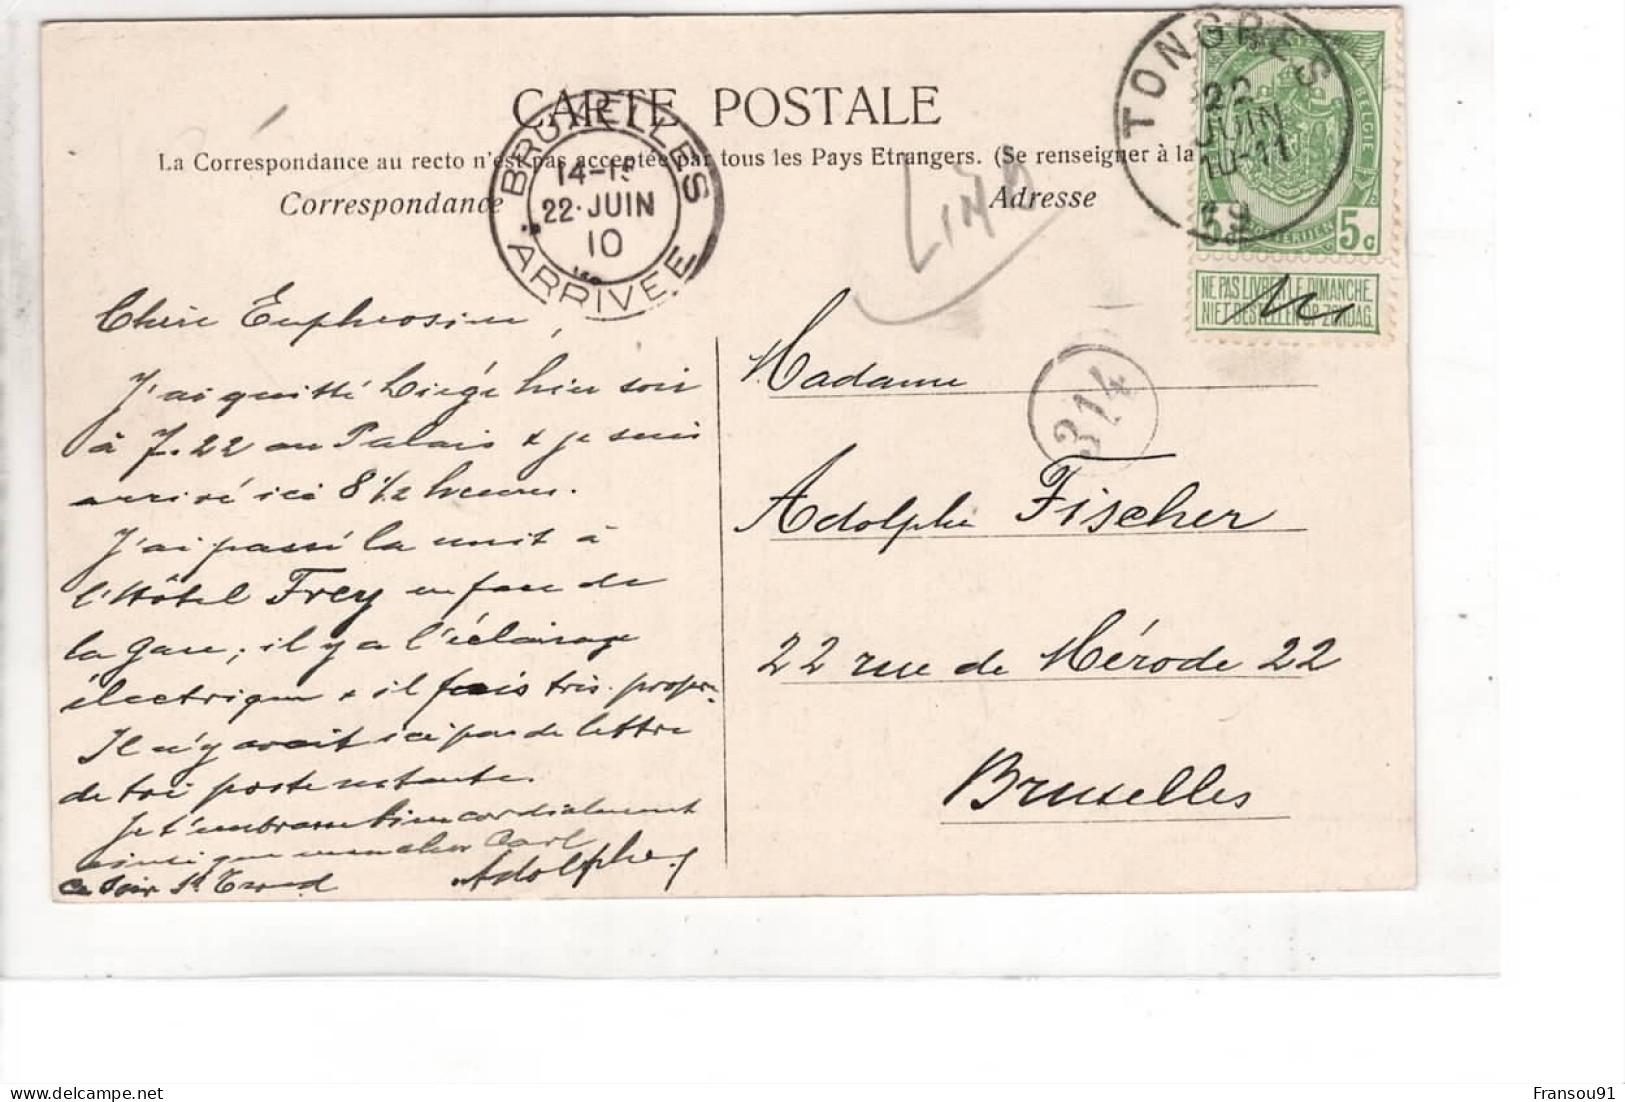 CARTE POSTALE
La Correspondance au recto n'est pas acceptée par tous les Pays Etrangers. (Se renseigner à la
Correspondance
Adresse
BRUXELLES
14-15
22·JUIN
10
ARRIVEE
TONGRES
22
JUIN
10-11
19
BELGIE
5c
NE PAS LIVRER LE DIMANCHE
NIET BESTELLEN OP ZONDAG
314
Chère Euphrosine,
J'ai quitté Liége hier soir
à 7.22 au Palais & je suis
arrivé ici 8 1/2 heures.
J'ai passé la nuit à
l'Hôtel Frey en face de
la gare; il y a l'éclairage
électrique & il fais très propre.
Il n'y avait ici pas de lettre
de toi poste restante.
Je t'embrasse bien cordialement
ainsi que mon cher Carl
Adolphe
ce soir St Trond
Madame
Adolphe Fischer
22 rue de Mérode 22
Bruxelles
Fransou91